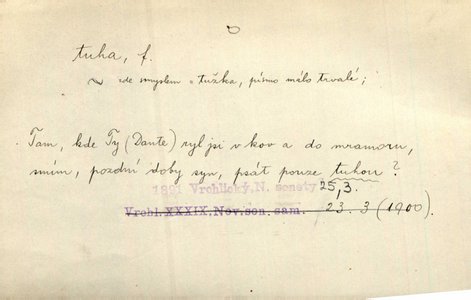 tuha, f.
~ zde smyslem = tužka, písmo málo trvalé;
Tam, kde Ty (Dante) ryl jsi v kov a do mramoru,
smím, pozdní doby syn, psát pouze tuhou?
1891 Vrchlický, N. sonety 25, 3.
Vrchl.XXXIX, Nov.son. sam. 23. 3 (1900).